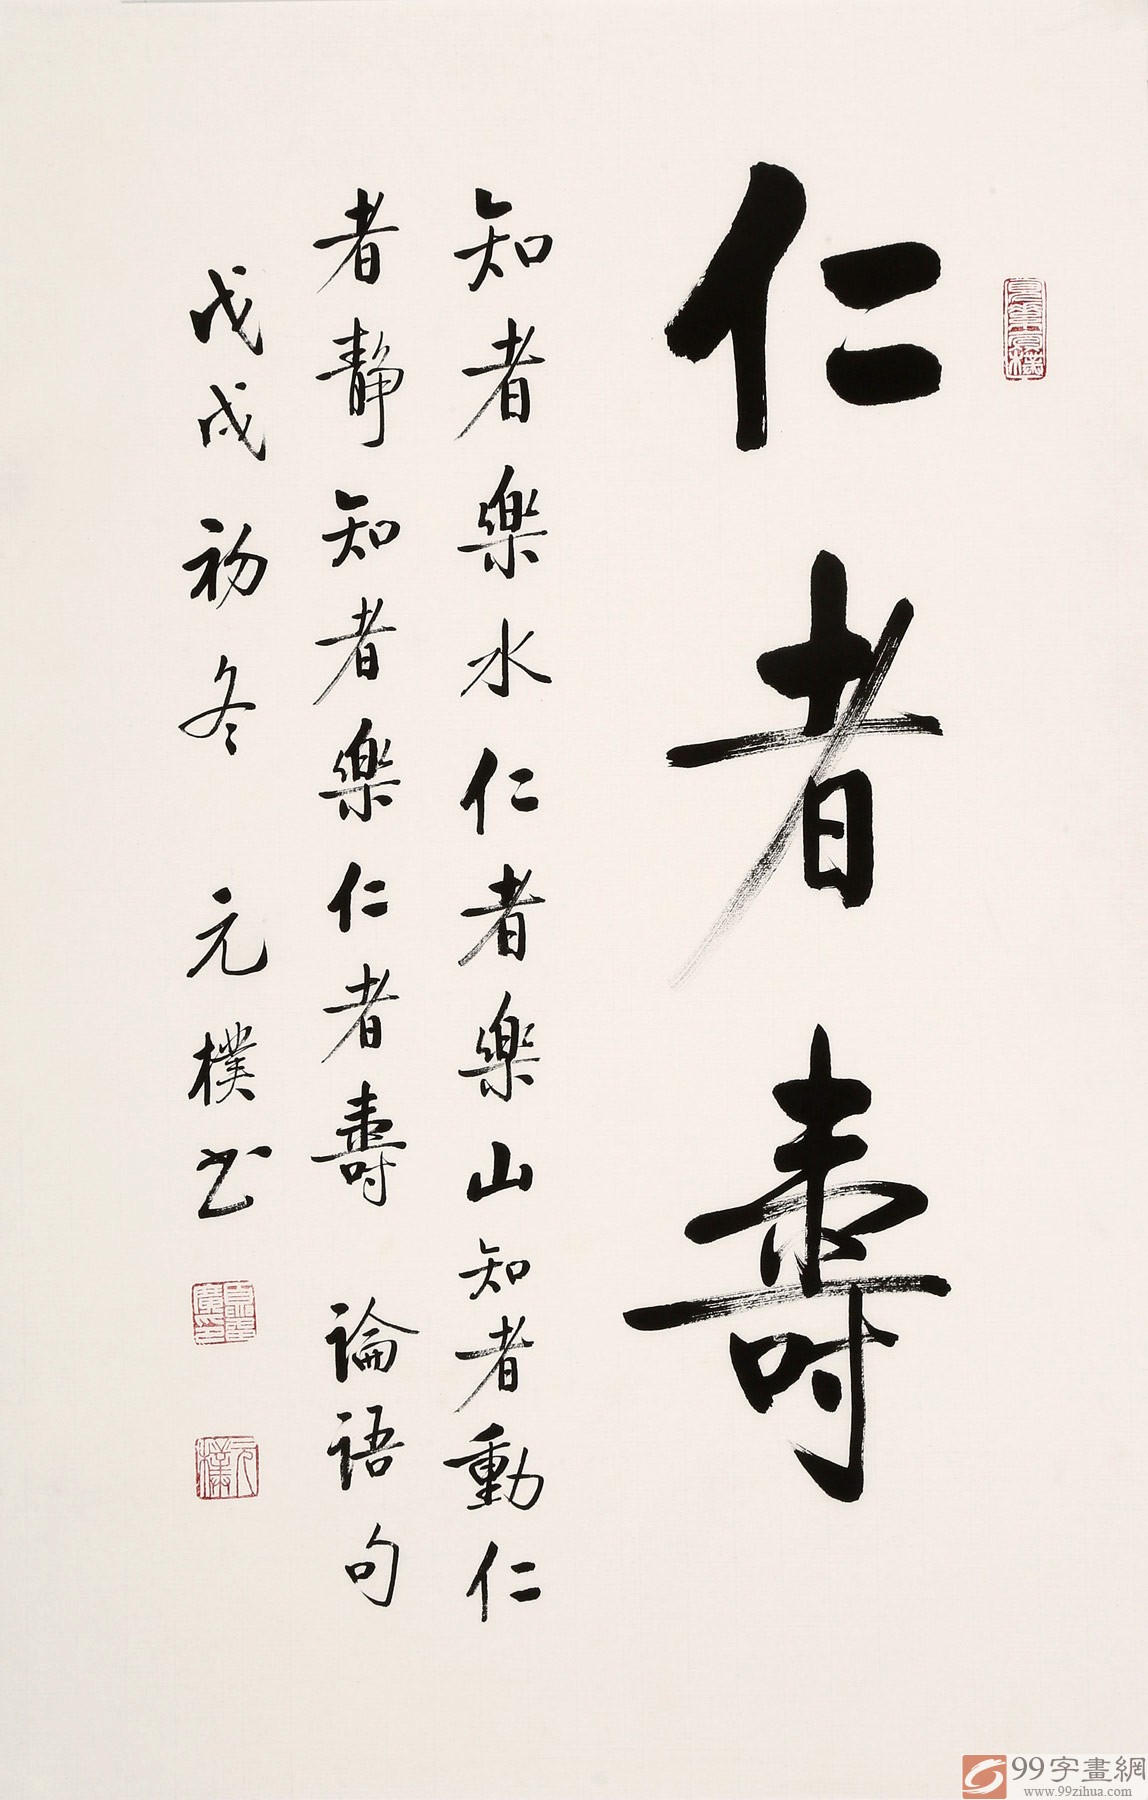 仁者壽
知者樂水仁者樂山知者動仁
者靜知者樂仁者壽 論語句
戊戌初冬 元樸书
元樸
99字畫網
www.99zihua.com